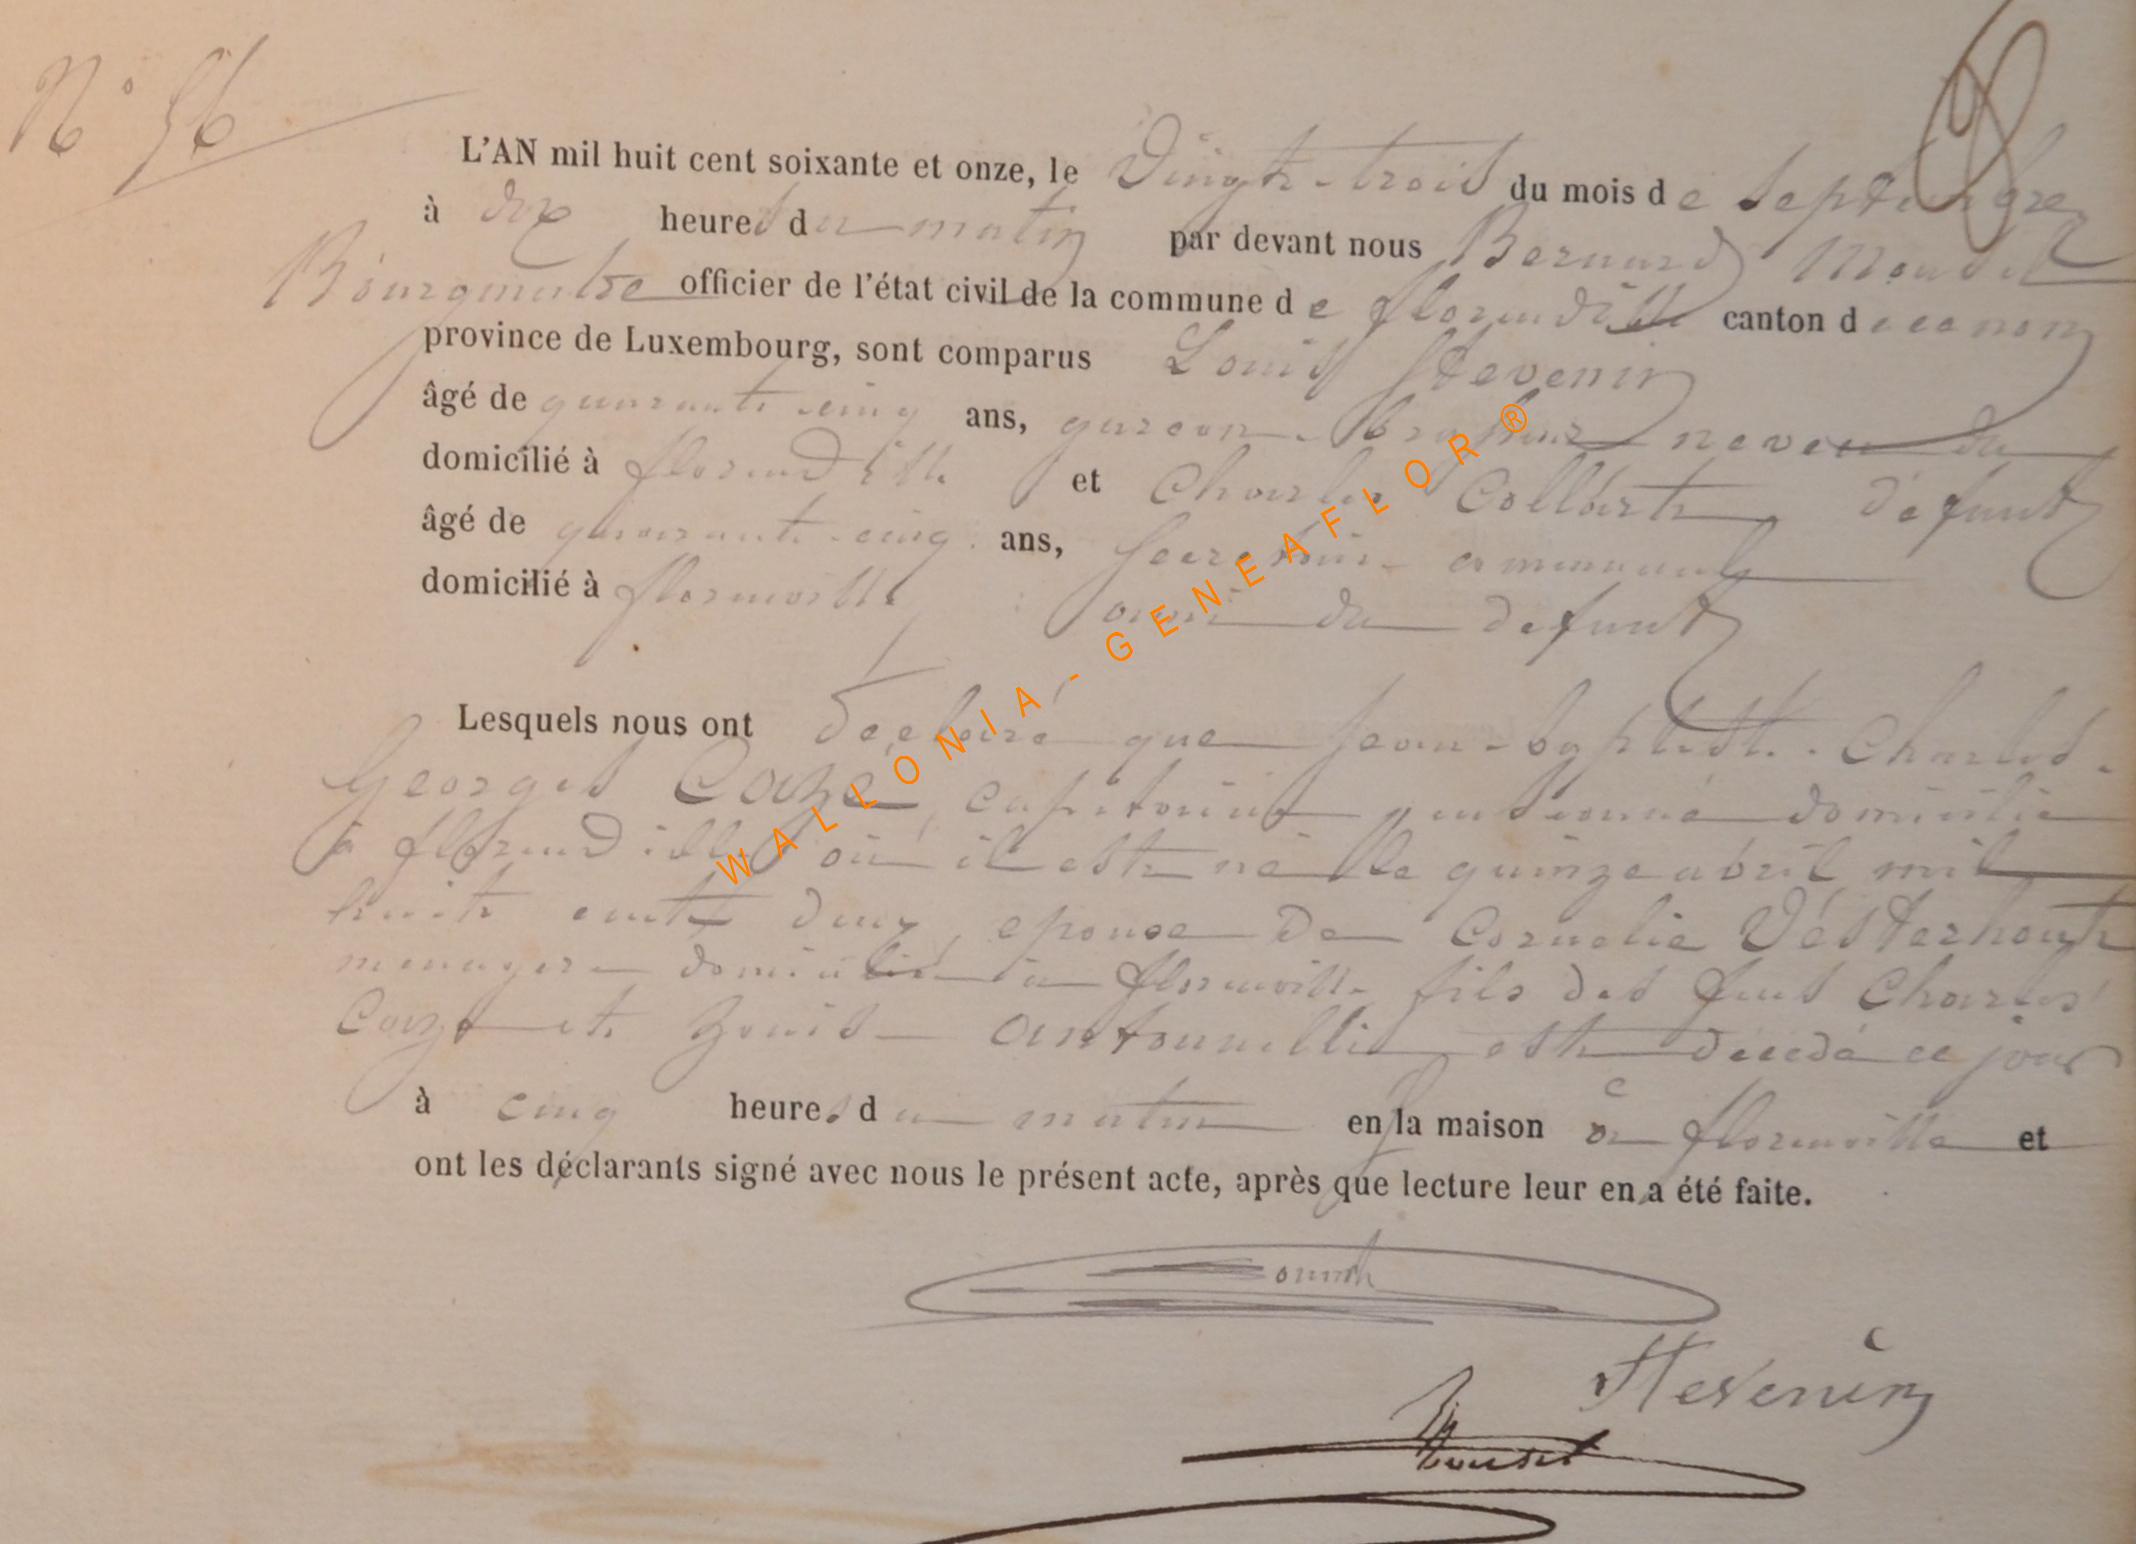 N° 56
L'AN mil huit cent soixante et onze, le Vingt-trois du mois de Septembre
à dix heures du matin par devant nous Bernard
Bourgmestre officier de l'état civil de la commune de florenville canton de
province de Luxembourg, sont comparus Louis Stevenin
âgé de quarante cinq ans, garcon-brasseur neveu du
domicilié à florenville et Charles Collart défunt
âgé de quarante-cinq ans, Secretaire communal
domicilié à florenville ami du defunt
Lesquels nous ont declaré que Jean-baptiste-Charles-
Georges Cazé, capitaine pensionné domicilié
à florenville où il est né le quinze abril mil
huit cent deux, epouse De Cornelie Vésterhout
menagere domicilié à florenville fils des feus Charles
Cazé et Louise Antoinette est décédé ce jour
à cinq heures du matin en la maison de florenville et
ont les déclarants signé avec nous le présent acte, après que lecture leur en a été faite.
Stevenin
WALLONIA-GENEAFLOR®